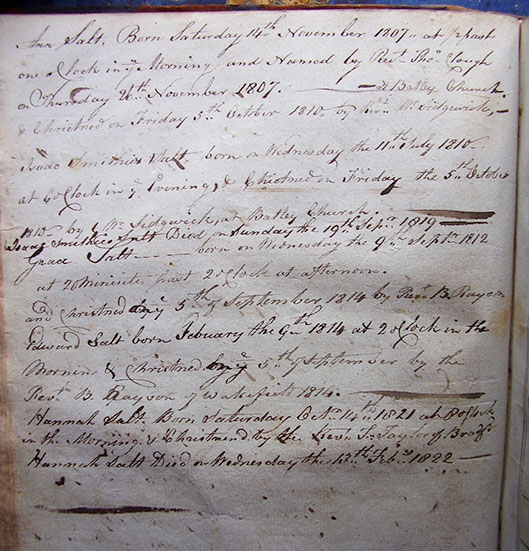 Ann Salt, Born Saturday 14th November 1807 at past
one o Clock in ye Morning and Named by Revd Thos Clough
on Thursday 26th November 1807. — at Batley Church.
& Christned on Friday 5th October 1810, by Revd Mr Sidgwick, —
Isaac Smithies Salt born on Wednesday the 11th July 1810
at 6 o Clock in ye Evening, & Christned on Friday the 5th October
1810 by Mr Sidgwick at Batley Church.
Isaac Smithies Salt Died on Sunday the 19th Sepr 1819
Grace Salt — born on Wednesday the 9th Septr 1812
at 20 Minuids past 2 o Clock at afternoon.
and Christned 5th of September 1814 by Revd B. Rayson
Edward Salt born Febuary the 9th 1814 at 2 o Clock in the
Morning & Christned 5th of September by the
Revd B. Rayson of Wakefield 1814.
Hannah Salt. Born Saturday 14th 1821 at 8 o Clock
in the Morning. & Christened by the Revd Taylor of
Hannah Salt Died on Wednesday the 13th Feby 1822 —